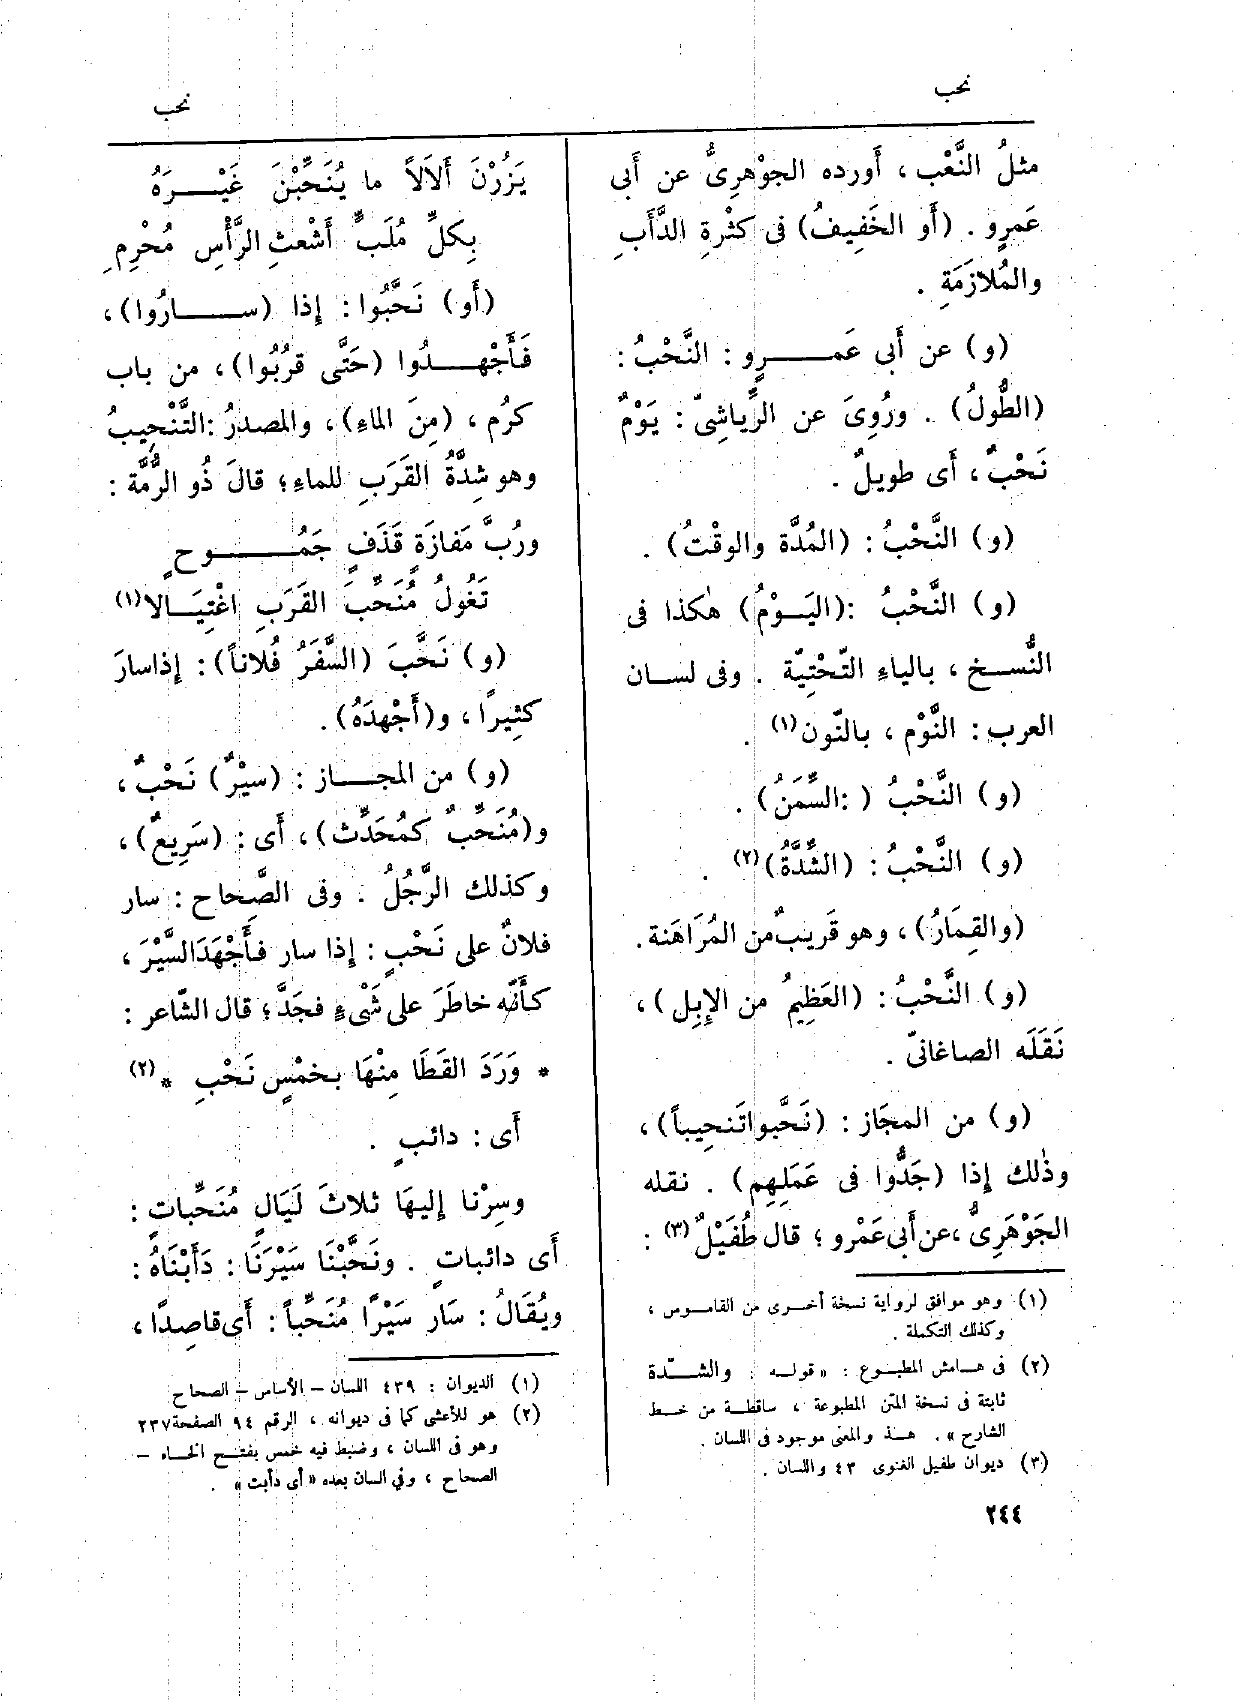 نحب
نحب
مثلُ النَّعْب ، أَورده الجوْهرِىُّ عن أَبى
عَمرٍو . (أَو الخَفِيفُ) فى كثْرةِ الدَّأَبِ
والمُلازَمَةِ .
(و) عن أَبى عَمـــرٍو : النَّحْبُ :
(الطُّولُ) . ورُوِىَ عن الرِّياشِىّ : يَوْمٌ
نَحْبٌ ، أَى طويلٌ .
(و) النَّحْبُ : (المُدَّة والوقْتُ) .
(و) النَّحْبُ :(اليَــوْمُ) هٰكذا فى
النُّســخ ، بالياءِ التّحْتِيّة . وفى لســان
العرب : النَّوْم ، بالنّون(١) .
(و) النَّحْبُ ( :السِّمَنُ) .
(و) النَّحْبُ : (الشِّدَّةُ)(٢) .
(والقِمَارُ) ، وهو قَرِيبٌ من المُرَاهَنة .
(و) النَّحْبُ : (العَظِيمُ من الإِبِل) ،
نَقَلَه الصاغانىّ .
(و) من المجَاز : (نَحَّبوا تَنحِيباً) ،
وذٰلك إِذا (جَدُّوا فى عَمَلِهِم) . نقله
الجَوْهَرِىُّ ،عن أَبى عَمْرو ؛ قال طُفَيْلٌ(٣) :
(١) وهو موافق لرواية نسخة أخــرى من القامــوس ،
وكذلك التكملة .
(٢) فى هــامش المطبــوع : « قولــه : والشــدّة
ثابتة فى نسخة المتن المطبوعة ، ساقطــة من خــط
الشارح » . هــذا والمعنى موجود فى اللسان .
(٣) ديوان طفيل الغنوى ٤٣ واللسان .
يَزُرْنَ أَلَالاً ما يُنَحِّبْنَ غَيْــرَهُ
بِكلِّ مُلَبٍّ أَشْعثِ الرَّأْسِ مُحْرِمِ
(أَو) نَحَّبُوا : إِذا (ســـارُوا) ،
فَأَجْهــدُوا (حَتَّى قرُبُوا) ، من باب
كرُم ، (مِنَ الماءِ) ، والمصدرُ :التَّنْحِيبُ
وهو شِدَّةُ القَرَبِ للماءِ ؛ قالَ ذُو الرُّمَّة :
ورُبَّ مَفازَةٍ قَذَفٍ جَمُــــوحٍ
تَغُولُ مُنَحِّبَ القَرَبِ اغْتِيَــالا(١)
(و) نَحَّبَ (السَّفَرُ فُلاناً) : إِذاسارَ
كثِيرًا ، و(أَجْهدَهُ) .
(و) من المجــاز : (سيْرٌ) نَحْبٌ ،
و(مُنَحِّبٌ كمُحَدِّث) ، أَى : (سَرِيعٌ) ،
وكذلك الرَّجُلُ . وفى الصّحاح : سار
فلانٌ على نَحْبٍ : إِذا سار فأَجْهَدَ السَّيْرَ ،
كأَنّه خاطَرَ على شَىْءٍ فجَدَّ ؛ قال الشّاعر :
* وَرَدَ القَطَا مِنْهَا بخمْسٍ نَحْبِ *(٢)
أَى : دائبٍ .
وسِرْنا إِليهَا ثلاثَ لَيَالٍ مُنَحِّباتٍ :
أَى دائباتٍ . ونَحَّبْنَا سَيْرَنَا : دَأَبْنَاهُ :
ويُقَالُ : سَار سَيْرًا مُنَحِّباً : أَى قاصِدًا ،
(١) الديوان : ٤٣٩ اللسان – الأساس – الصحاح
(٢) هو للأعشى كما فى ديوانه ، الرقم ٩٤ الصفحة ٢٣٧
وهو فى اللسان ، وضبط فيه خمس بفتــح الخــاء –
الصحاح ، وفي السان بعده « أى دأبت » .
٢٤٤